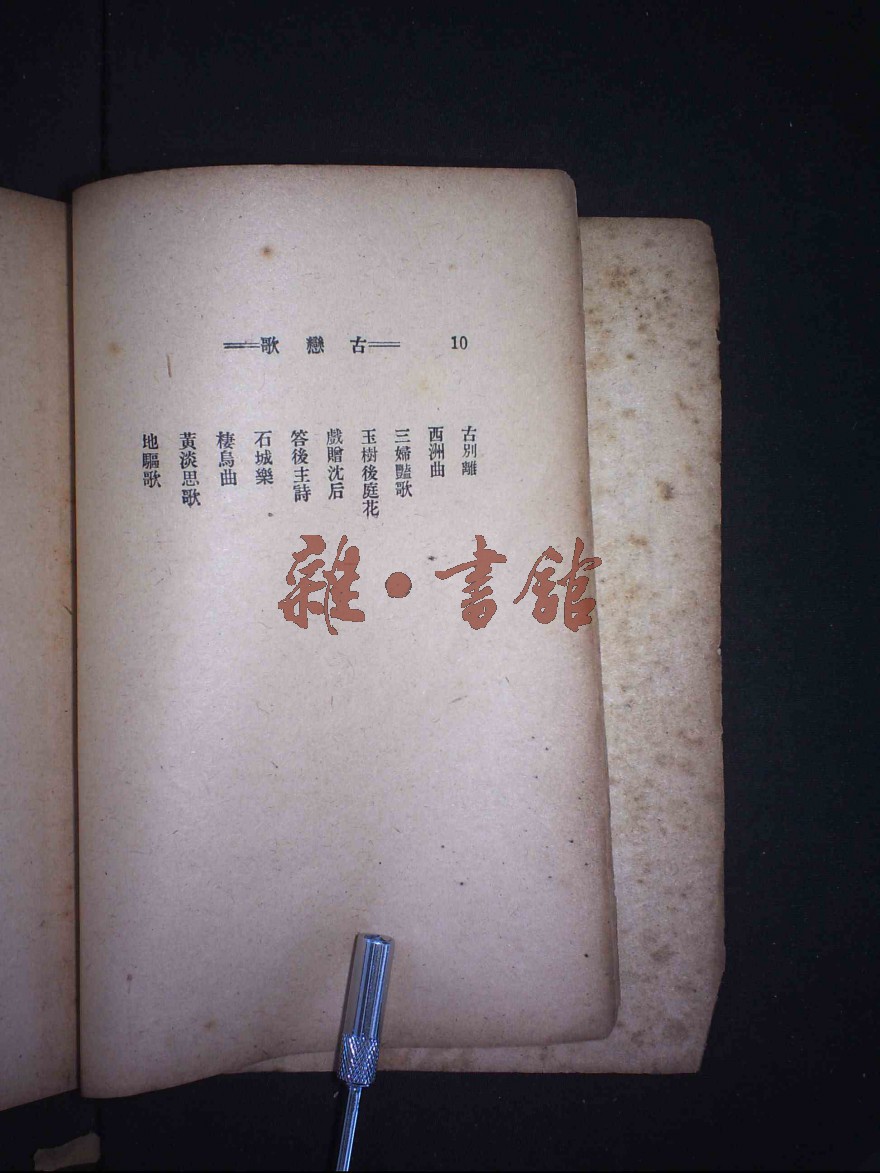 10 ══古戀歌══
古別離
西洲曲
三婦豔歌
玉樹後庭花
戲贈沈后
答後主詩
石城樂
棲烏曲
黃淡思歌
地驅歌
雜·書館